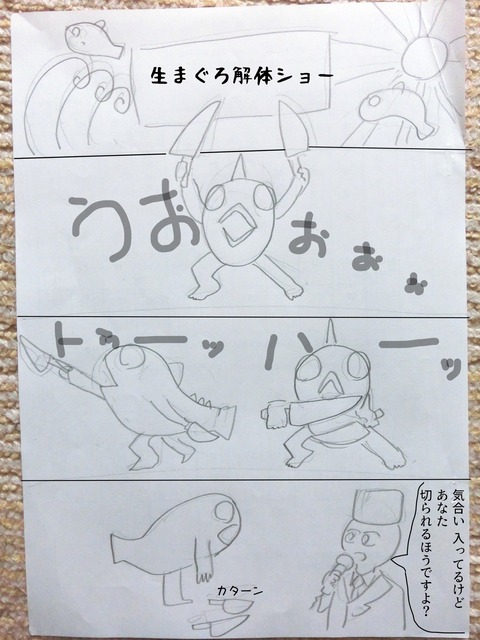 生まぐろ解体ショー
うおおおぉ
トゥーッ
ハーッ
気合い入ってるけど
あなた
切られるほうですよ?
カターン